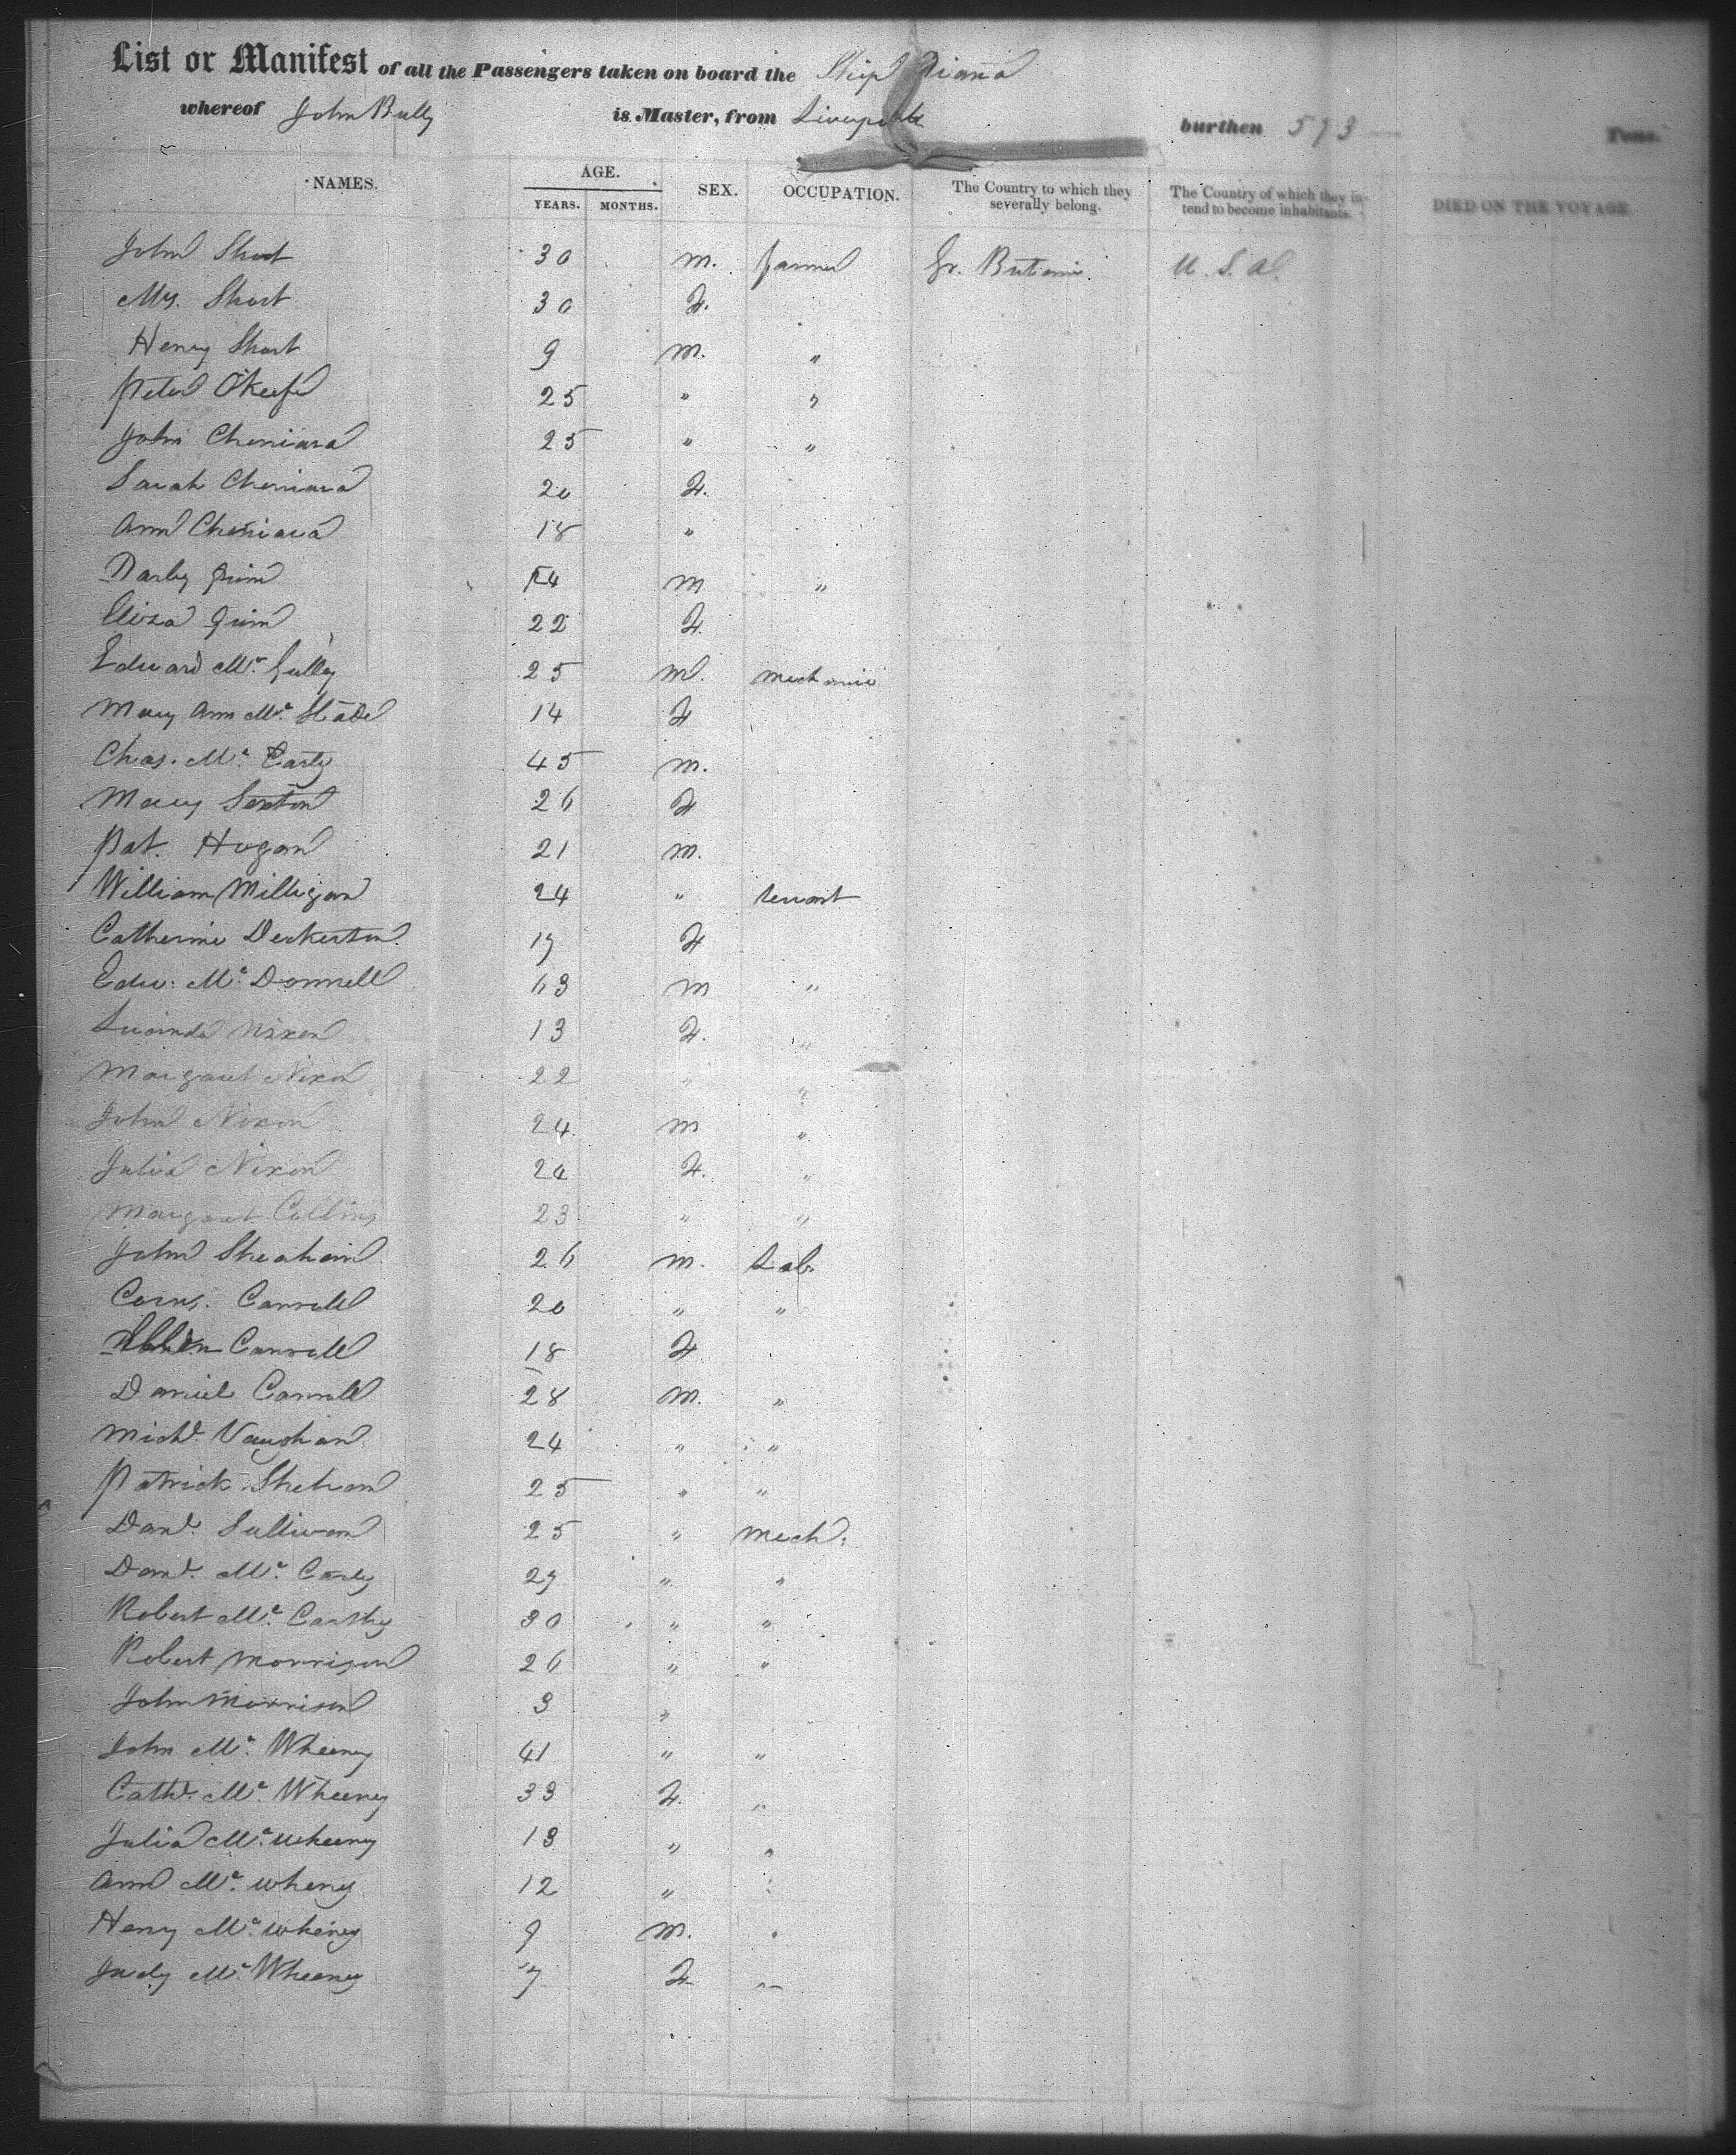 List or Manifest of all the Passengers taken on board the Ship Diana
whereof John Bully is Master, from Liverpool burthen 593 Tons.
NAMES. AGE. YEARS. MONTHS. SEX. OCCUPATION. The Country to which they severally belong. The Country of which they intend to become inhabitants. DIED ON THE VOYAGE
John Short 30 m. farmer Gr. Britain U. S. A.
Mrs. Short 30 F.
Henry Short 9 m. "
Peter O'Keefe 25 " "
John 25 " "
Sarah 20 F.
Ann 18 "
Darby Quin m "
Eliza Quin 22 F.
Edward Mc. Gulley 25 m. mechanic
Mary Ann Mc. 14 F
Chas. Mc. Carty 45 m.
Mary Sexton 26 F
Pat. Hogan 21 m.
William Milligan 24 " servant
Catherine Deckerton 17 F
Edw. Mc. Donnell 63 m "
Lucinda Nixon 13 F. "
Margaret Nixon 22 " "
John Nixon 24 m "
Julia Nixon 20 F. "
Margaret Collins 23 " "
John Sheahan 26 m. Lab.
Corns. Carroll 20 " "
Carroll 18 F
Daniel Carroll 28 m. "
Michl. Vaughan 24 " "
Patrick Shehan 25 " "
Danl. Sullivan 25 " mech.
Danl. Mc. Carty 27 " "
Robert Mc. Carthy 30 " "
Robert Morrison 26 " "
John Morrison 3 "
John Mc. Wheeny 41 " "
Cathe. Mc. Wheeny 33 F. "
Julia Mc. Wheeny 13 " "
Ann Mc. Wheny 12 "
Henry Mc. Wheney 9 m.
Judy Mc. Wheeny 7 F